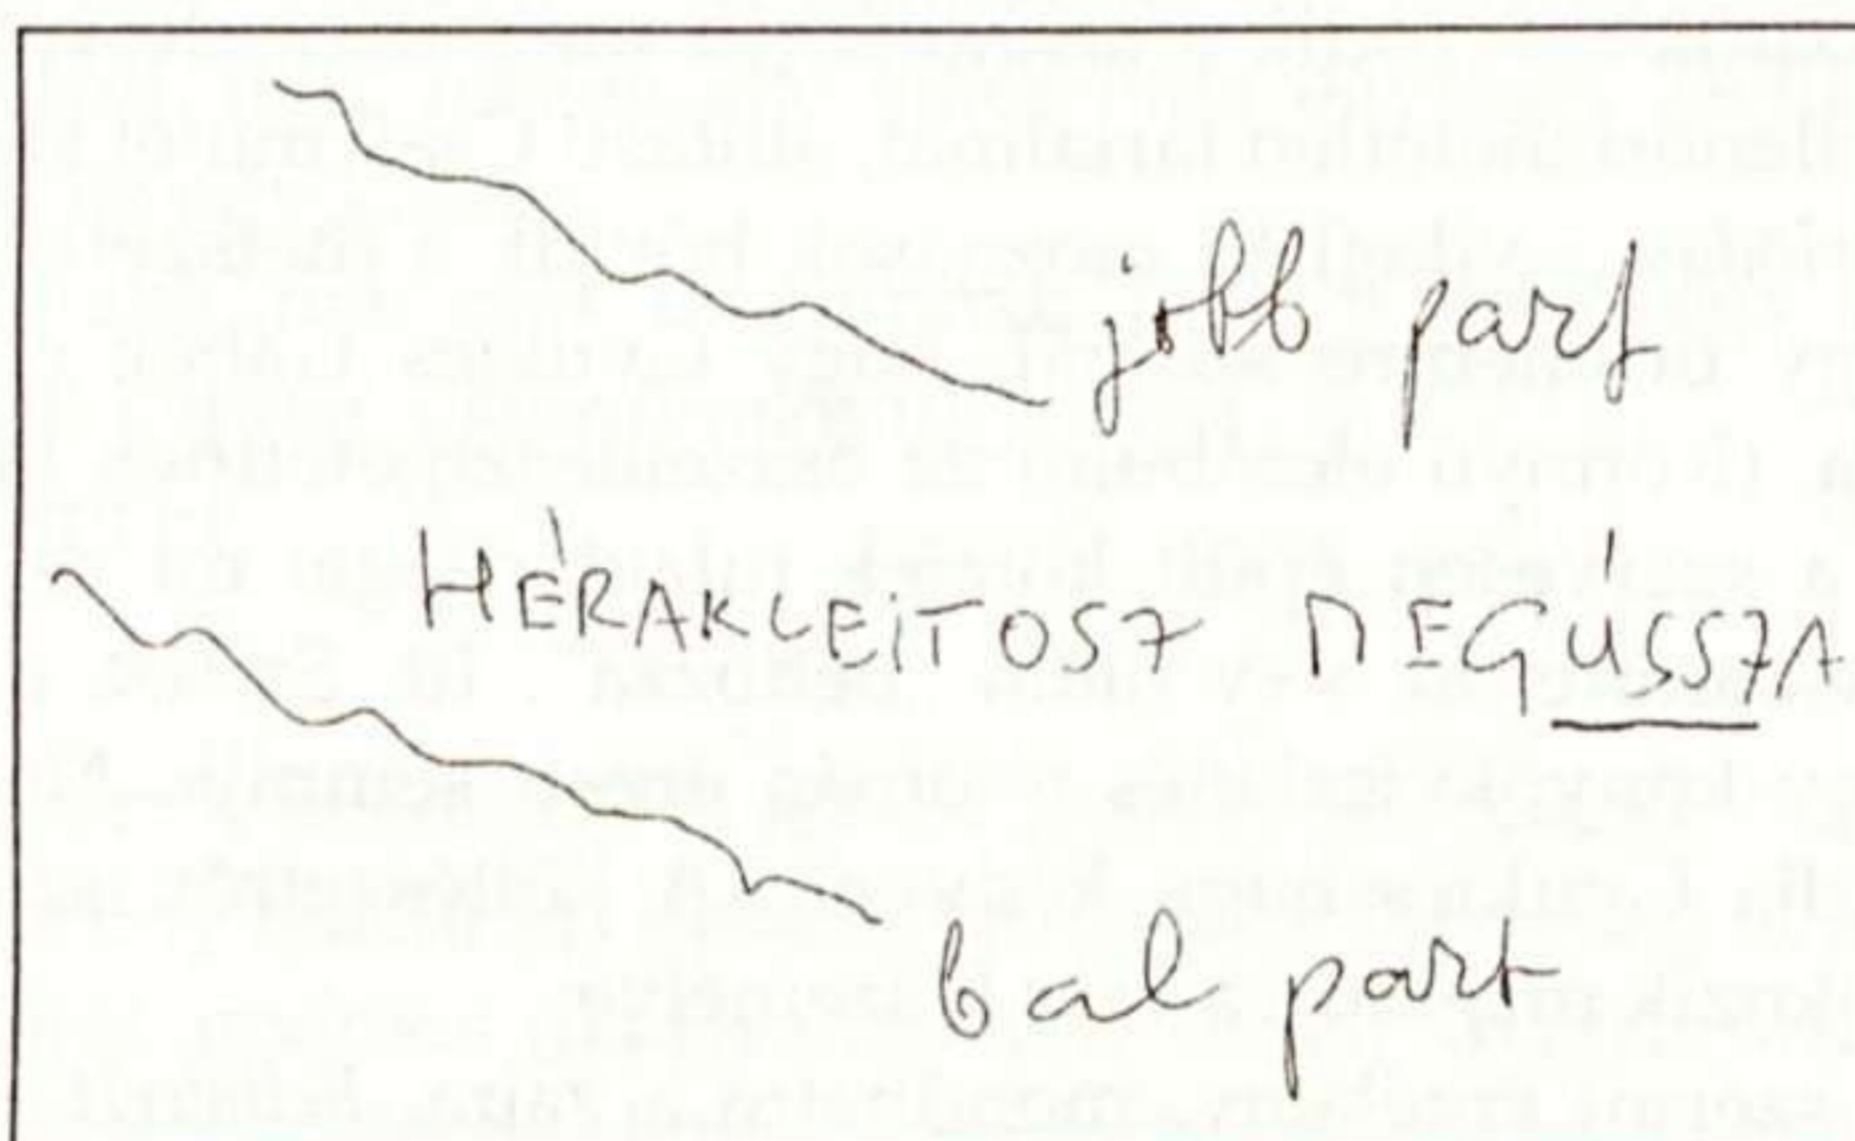 jobb part
HÉRAKLEITOSZ MEGÚSSZA
bal part